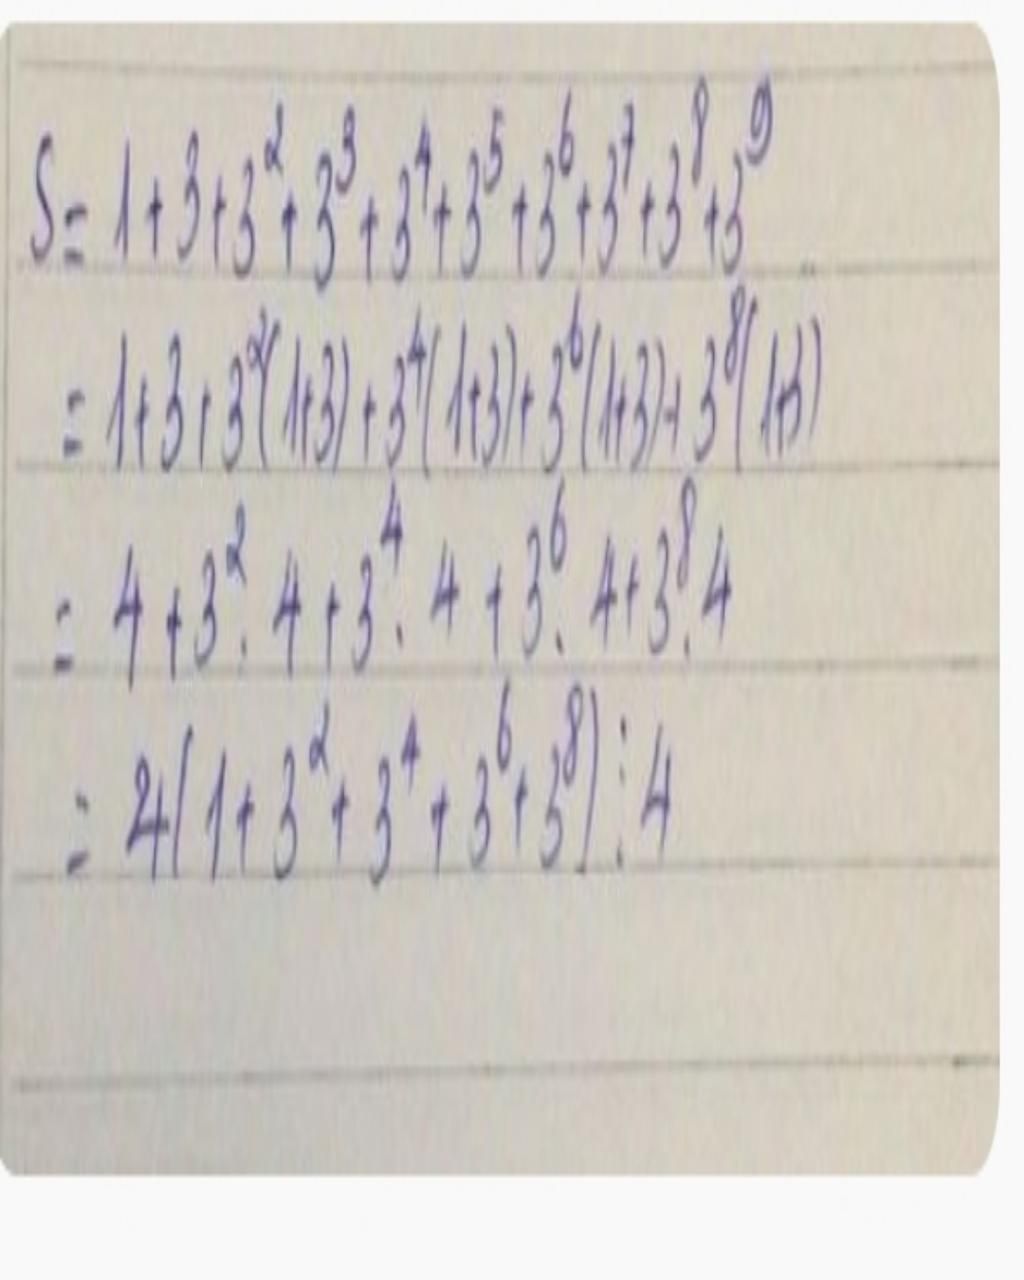 S = 1 + 3 + 3² + 3³ + 3⁴ + 3⁵ + 3⁶ + 3⁷ + 3⁸ + 3⁹
= 1 + 3 + 3²(1+3) + 3⁴(1+3) + 3⁶(1+3) + 3⁸(1+3)
= 4 + 3² . 4 + 3⁴ . 4 + 3⁶ . 4 + 3⁸ . 4
= 4(1 + 3² + 3⁴ + 3⁶ + 3⁸) ⋮ 4